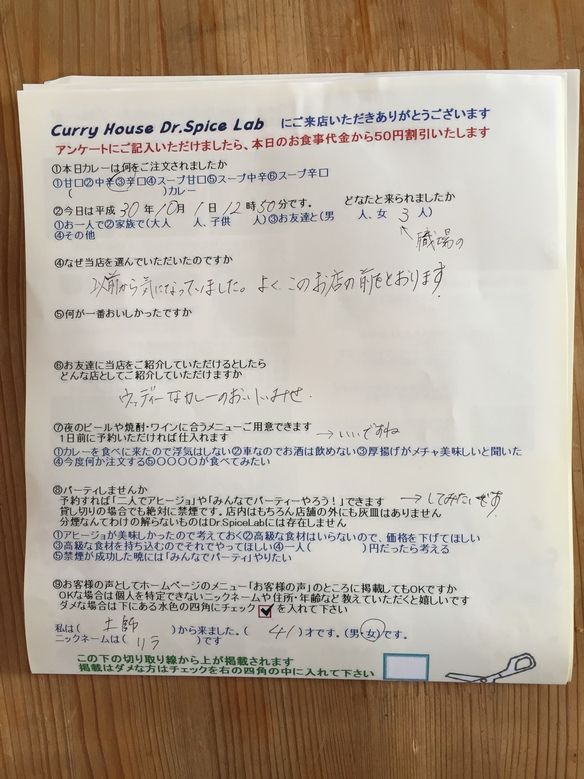 Curry House Dr.Spice Lab にご来店いただきありがとうございます
アンケートにご記入いただけましたら、本日のお食事代金から50円割引いたします
①本日カレーは何をご注文されましたか
①甘口②中辛③辛口④スープ甘口⑤スープ中辛⑥スープ辛口
( )カレー
②今日は平成 30 年 10 月 1 日 12 時 50 分です。 どなたと来られましたか
①お一人で②家族で(大人 人、子供 人)③お友達と(男 人、女 3 人)
④その他 職場の
④なぜ当店を選んでいただいたのですか
以前から気になっていました。よくこのお店の前をとおります
⑤何が一番おいしかったですか
⑥お友達に当店をご紹介していただけるとしたら
どんな店としてご紹介していただけますか
ウッディーなカレーのおいしいみせ.
⑦夜のビールや焼酎・ワインに合うメニューご用意できます
1日前に予約いただければ仕入れます → いいですね
①カレーを食べに来たので浮気はしない②車なのでお酒は飲めない③厚揚げがメチャ美味しいと聞いた
④今度何か注文する⑤〇〇〇〇が食べてみたい
⑧パーティしませんか
予約すれば「二人でアヒージョ」や「みんなでパーティーやろう!」できます → してみたいです
貸し切りの場合でも絶対に禁煙です。店内はもちろん店舗の外にも灰皿はありません
分煙なんてわけの解らないものはDr.SpiceLabには存在しません
①アヒージョが美味しかったので考えておく②高級な食材はいらないので、価格を下げてほしい
③高級な食材を持ち込むのでそれでやってほしい④一人( )円だったら考える
⑤禁煙が成功した暁には「みんなでパーティ」やりたい
⑨お客様の声としてホームページのメニュー「お客様の声」のところに掲載してもOKですか
OKな場合は個人を特定できないニックネームや住所・年齢など教えていただくと嬉しいです
ダメな場合は下にある水色の四角にチェック を入れて下さい
私は( 土師 )から来ました。( 41 )才です。(男・女)です。
ニックネームは( リラ )です
この下の切り取り線から上が掲載されます
掲載はダメな方はチェックを右の四角の中に入れて下さい